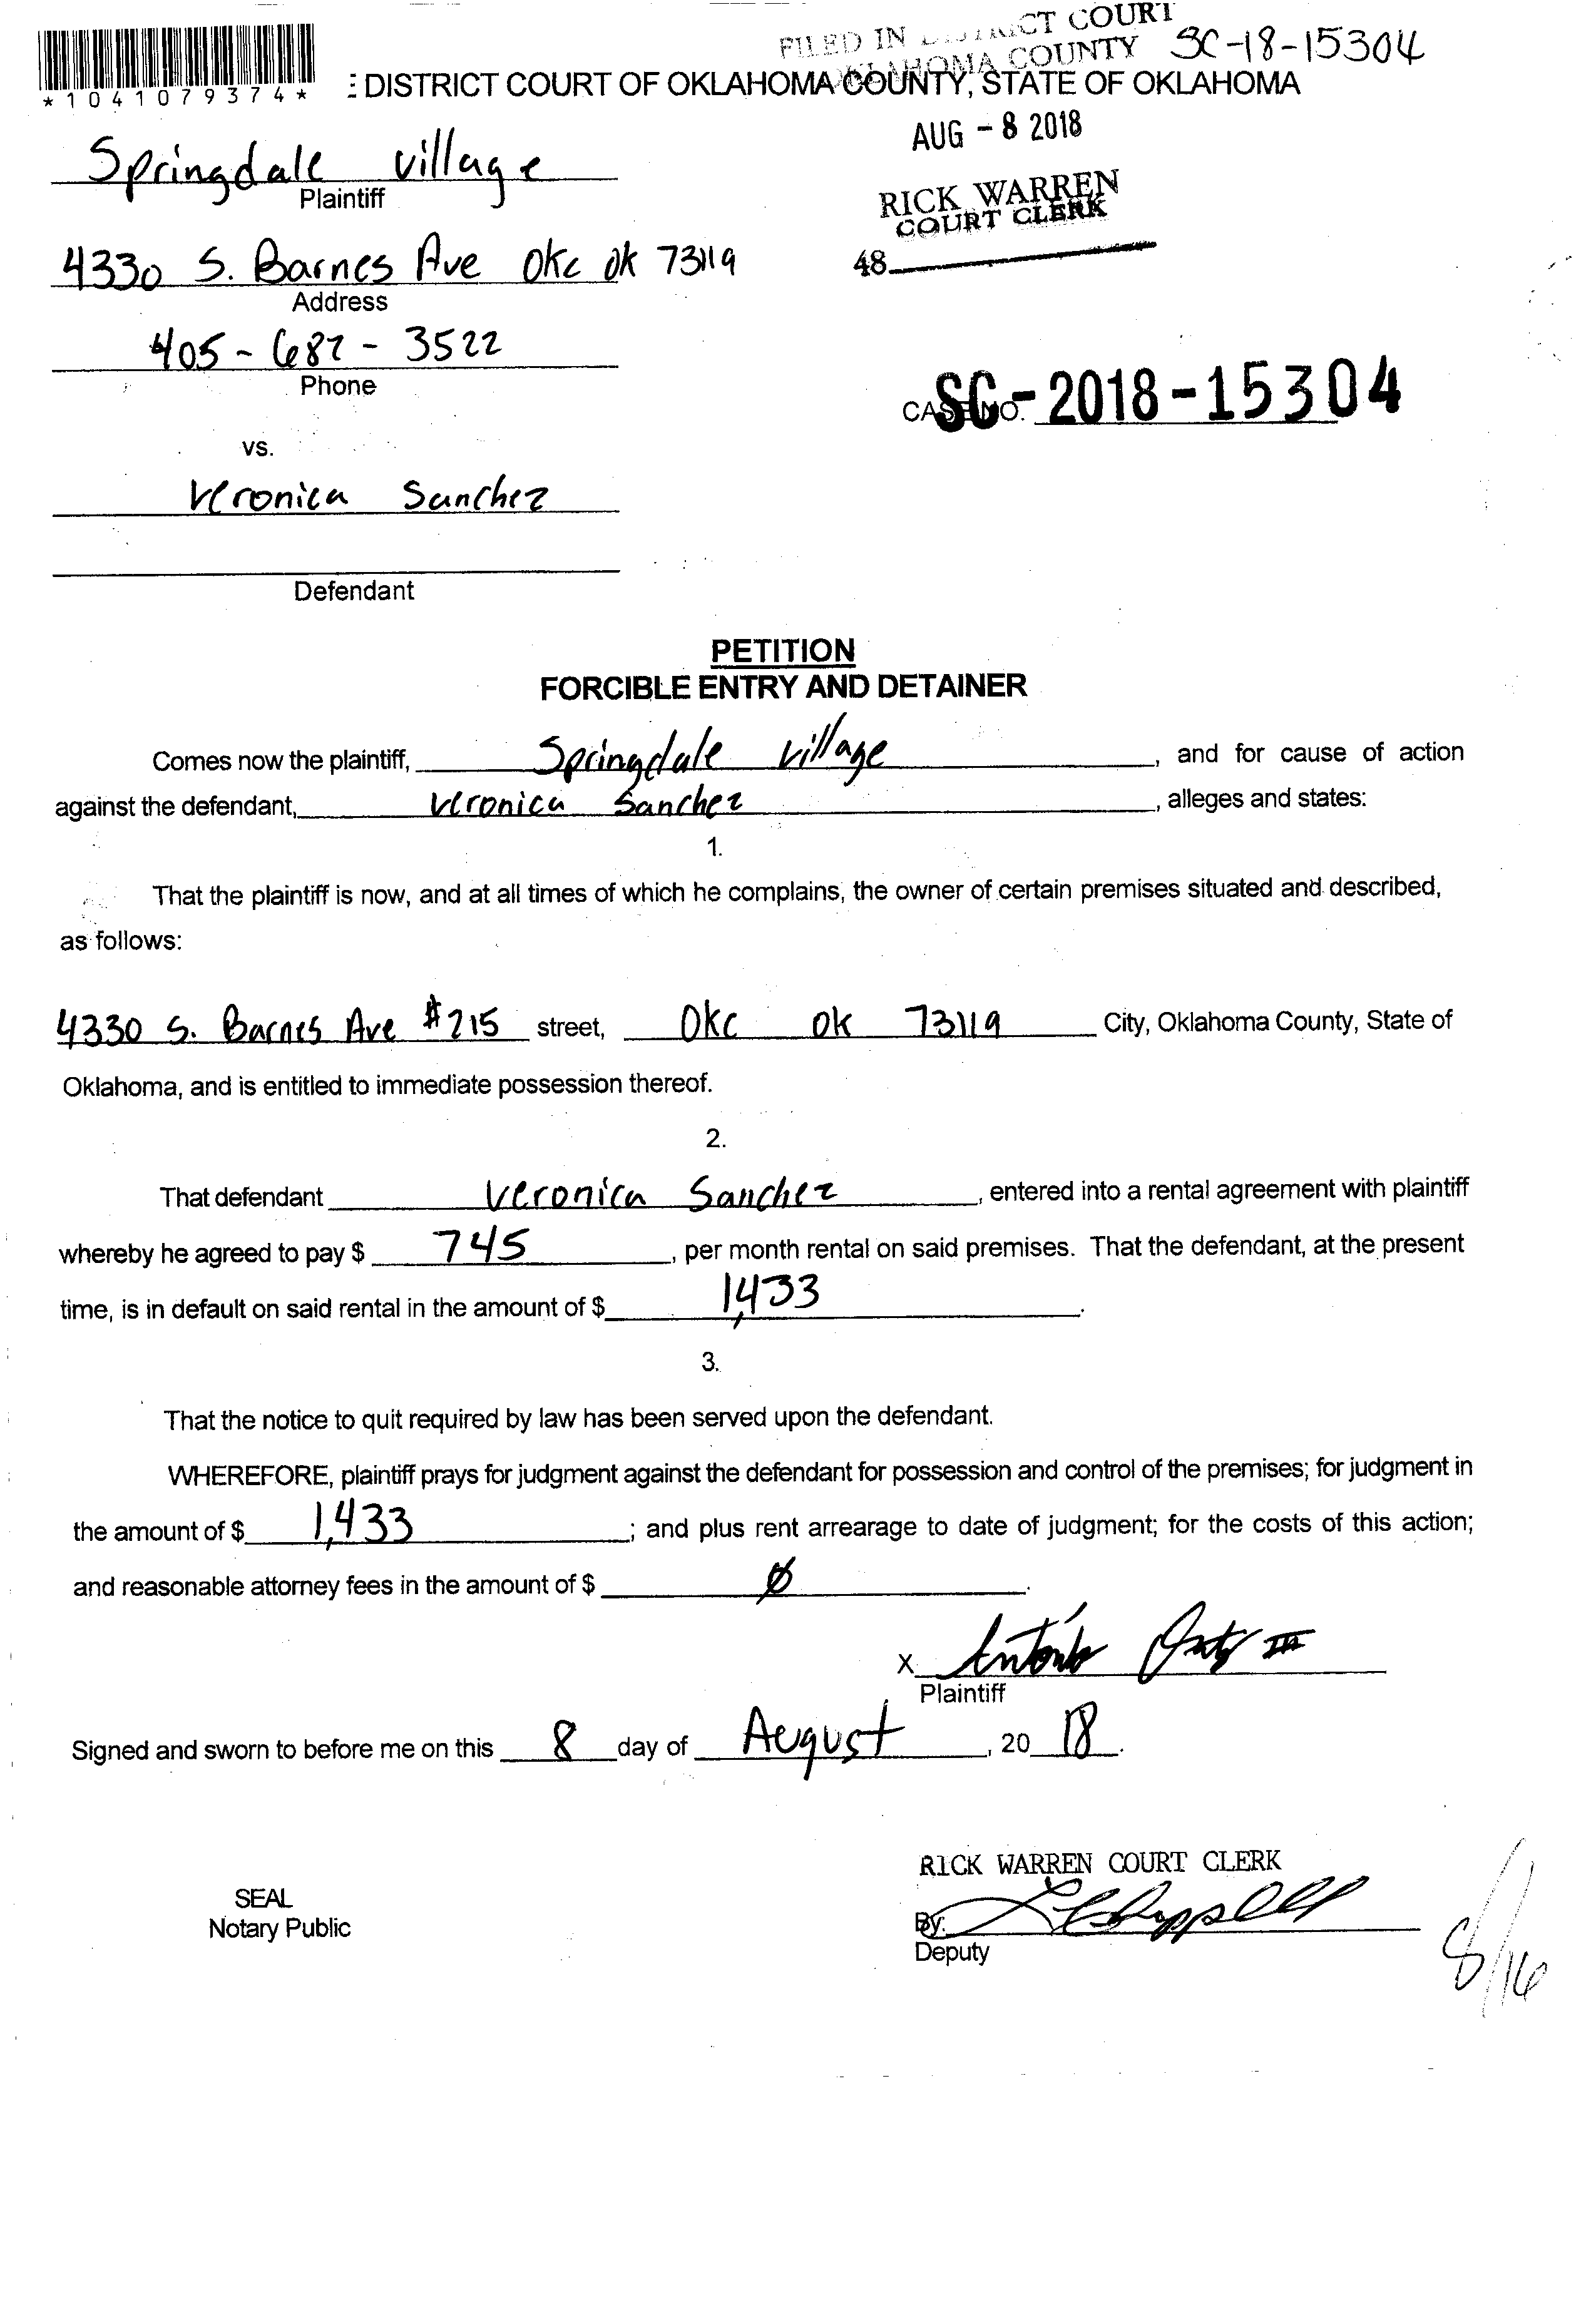 FILED IN DISTRICT COURT
OKLAHOMA COUNTY SC-18-15304
*1041079374*
E DISTRICT COURT OF OKLAHOMA COUNTY, STATE OF OKLAHOMA
AUG - 8 2018
Springdale Village
Plaintiff
RICK WARREN
COURT CLERK
4330 S. Barnes Ave OKC OK 73119
48
Address
405-682-3522
Phone
CASE NO. SC-2018-15304
vs.
Veronica Sanchez
Defendant
PETITION
FORCIBLE ENTRY AND DETAINER
Comes now the plaintiff, Springdale Village, and for cause of action
against the defendant, Veronica Sanchez, alleges and states:
1.
That the plaintiff is now, and at all times of which he complains, the owner of certain premises situated and described,
as follows:
4330 S. Barnes Ave #215 street, OKC OK 73119 City, Oklahoma County, State of
Oklahoma, and is entitled to immediate possession thereof.
2.
That defendant Veronica Sanchez, entered into a rental agreement with plaintiff
whereby he agreed to pay $ 745, per month rental on said premises. That the defendant, at the present
time, is in default on said rental in the amount of $ 1,433.
3.
That the notice to quit required by law has been served upon the defendant.
WHEREFORE, plaintiff prays for judgment against the defendant for possession and control of the premises; for judgment in
the amount of $ 1,433; and plus rent arrearage to date of judgment; for the costs of this action;
and reasonable attorney fees in the amount of $ Ø.
X Antonio III
Plaintiff
Signed and sworn to before me on this 8 day of August, 20 18.
RICK WARREN COURT CLERK
SEAL
Notary Public
By:
Deputy
8/16